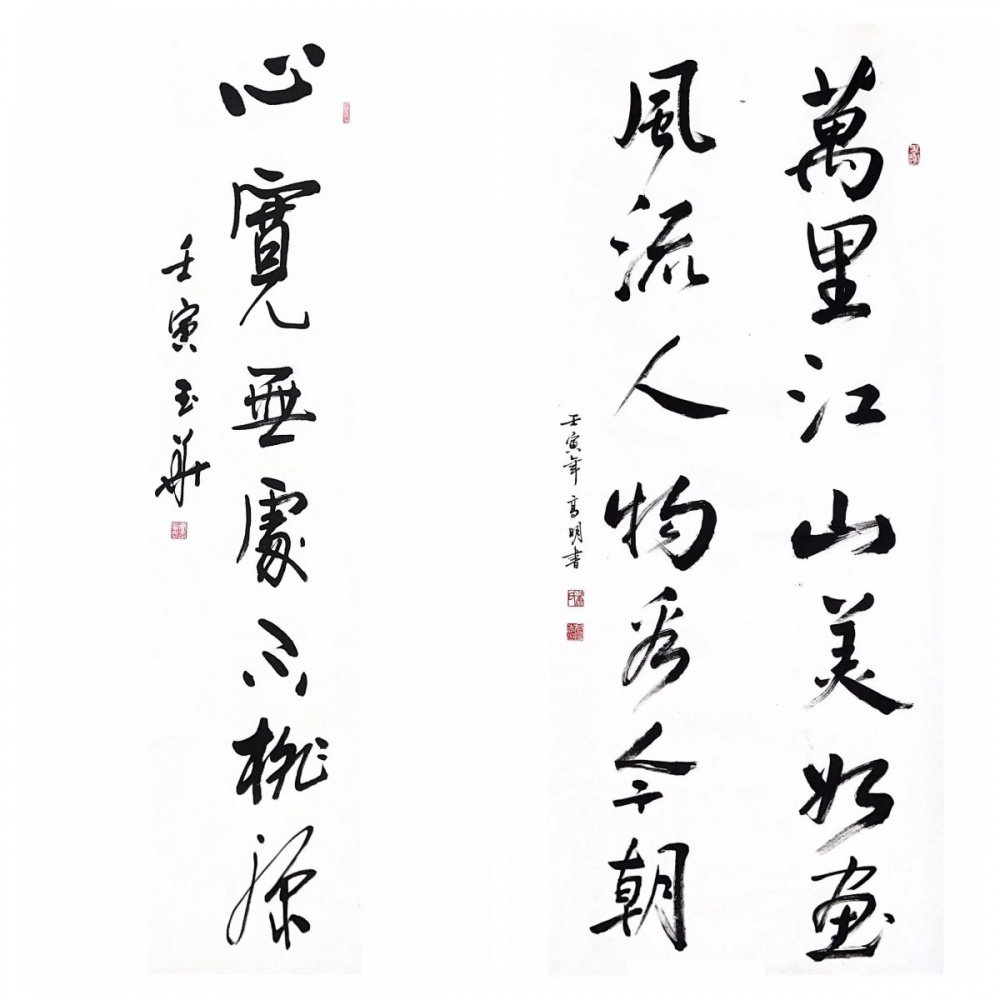 萬里江山美如畫
風流人物看今朝
壬寅年 高明書
心寬無處不桃源
壬寅玉華